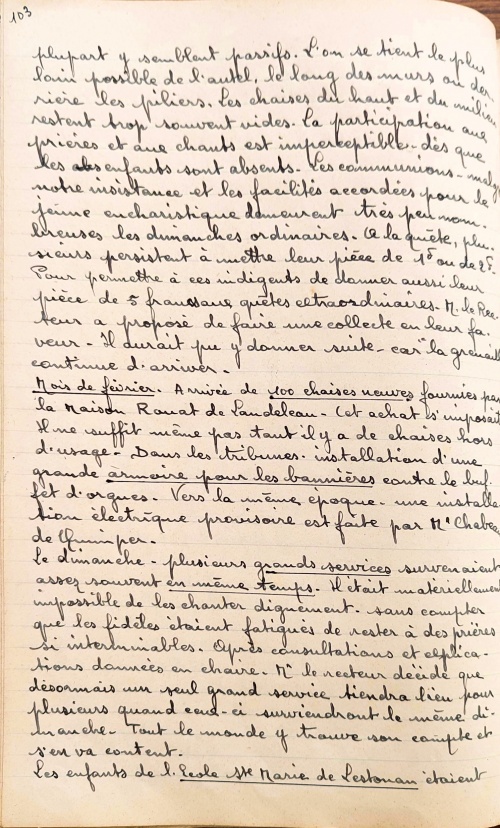 103
plupart y semblent passifs. L'on se tient le plus
loin possible de l'autel, le long des murs ou der
rière les piliers. Les chaises du haut et du milieu
restent trop souvent vides. La participation aux
prières et aux chants est imperceptible - dès que
les enfants sont absents. Les communions - malg
notre insistance et les facilités accordées pour le
jeûne eucharistique demeurent très peu nom.
breuses les dimanches ordinaires. A la quête, plu.
sieurs persistent à mettre leur pièce de 1f ou de 2f.
Pour permettre à ces indigents de donner aussi leur
pièce de 5 francs aux quêtes extraordinaires - M. le Rec.
teur a proposé de faire une collecte en leur fa.
veur - Il durait pu y donner suite - car "la grenaille
continue d'arriver.
Mois de février. Arrivée de 100 chaises neuves fournies par
la Maison Rouat de Landeleau - Cet achat s'imposait
Il ne suffit même pas tant il y a de chaises hors
d'usage - Dans les tribunes. installation d'une
grande armoire pour les bannières contre le buf.
fet d'orgues - Vers la même époque - une installa
tion électrique provisoire est faite par Mr
de Quimper.
Le dimanche - plusieurs grands services survenaient
assez souvent en même temps. Il était matériellement
impossible de les chanter dignement - sans compter
que les fidèles étaient fatigués de rester à des prières
si interminables. Après consultations et explica -
tions données en chaire - Mr le recteur décide que
désormais un seul grand service tiendra lieu pour
plusieurs quand ceux-ci surviendront le même di -
manche - Tout le monde y trouve son compte et
s'en va content.
Les enfants de l. Ecole Ste Marie de Lestonan étaient